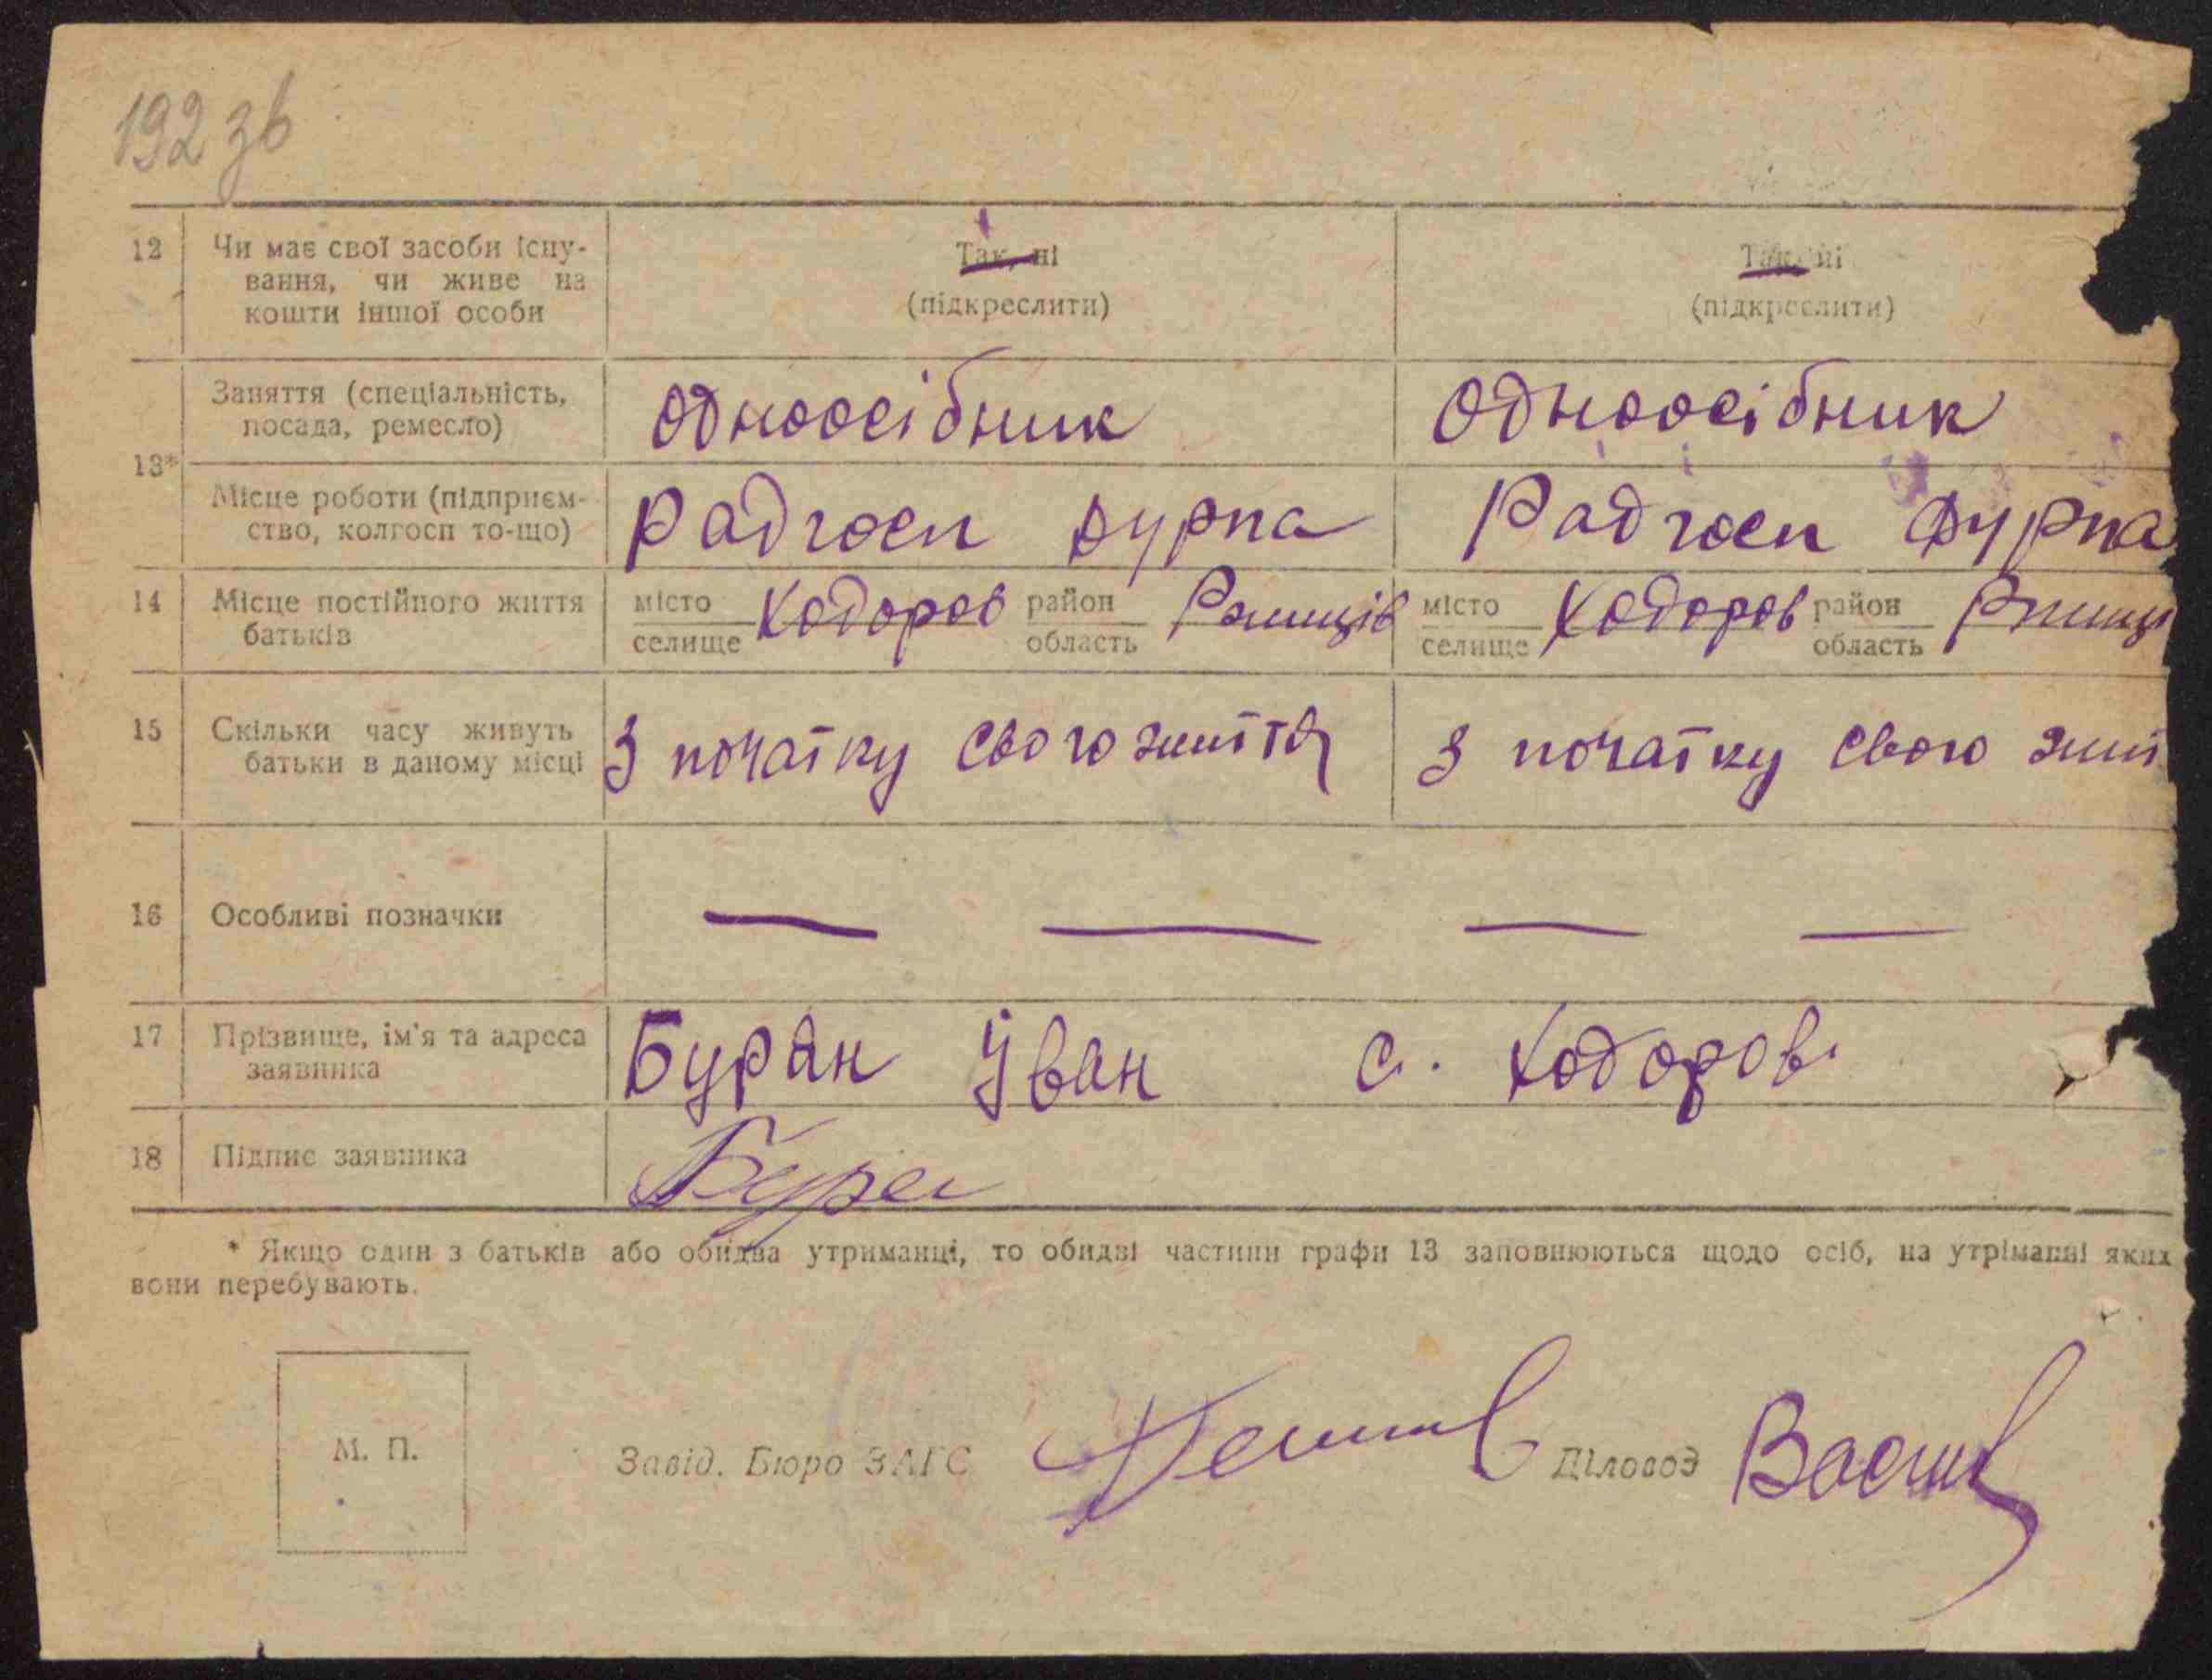 192 зв
12 Чи має свої засоби існу-
вання, чи живе на
кошти іншої особи
Так, ні
(підкреслити)
Так, ні
(підкреслити)
13*
Заняття (спеціальність,
посада, ремесло)
Одноосібник
Одноосібник
Місце роботи (підприєм-
ство, колгосп то-що)
Радгосп Фурпа
Радгосп Фурпа
14 Місце постійного життя
батьків
місто
селище
Ходоров
район
область
Ржищів
місто
селище
Ходоров
район
область
Ржищ
15 Скільки часу живуть
батьки в даному місці
З початку свого життя
З початку свого жит
16 Особливі позначки
— — — —
17 Прізвище, ім'я та адреса
заявника
Буран Іван с. Ходоров
18 Підпис заявника
Буран
* Якщо один з батьків або обидва утриманці, то обидві частини графи 13 заповнюються щодо осіб, на утріманні яких
вони перебувають.
М. П.
Завід. Бюро ЗАГС
Діловод